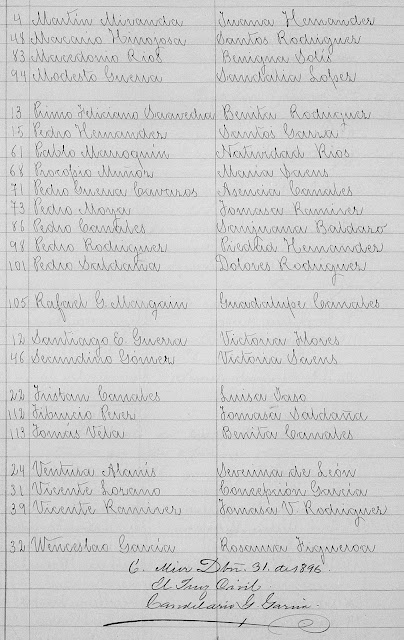 4 Martin Miranda Juana Hernandez
48 Macario Hinojosa Santos Rodriguez
83 Macedonio Rios Benigna Solis
94 Modesto Guerra Sandalia Lopez
13 Primo Feliciano Saavedra Benita Rodriguez
15 Pedro Hernandez Santos Garza
61 Pablo Marroquin Natividad Rios
68 Procopio Muñoz Maria Saens
71 Pedro Guerra Cavazos Asencia Canales
73 Pedro Moya Tomasa Ramirez
86 Pedro Canales Sanjuana Baldazo
98 Pedro Rodriguez Piedad Hernandez
101 Pedro Saldaña Dolores Rodriguez
105 Rafael G. Margain Guadalupe Canales
12 Santiago E. Guerra Victoria Flores
46 Secundino Gomez Victoria Saens
22 Tristan Canales Luisa Laso
112 Tiburcio Perez Tomasa Saldaña
113 Tomás Vela Benita Canales
24 Ventura Alanís Severina de León
31 Vicente Lozano Concepción García
39 Vicente Ramirez Tomasa V. Rodriguez
32 Wenceslao García Rosaura Figueroa
C. Mier Dbre. 31. de 1896.
El Juez Civil
Candelario G. Garcia